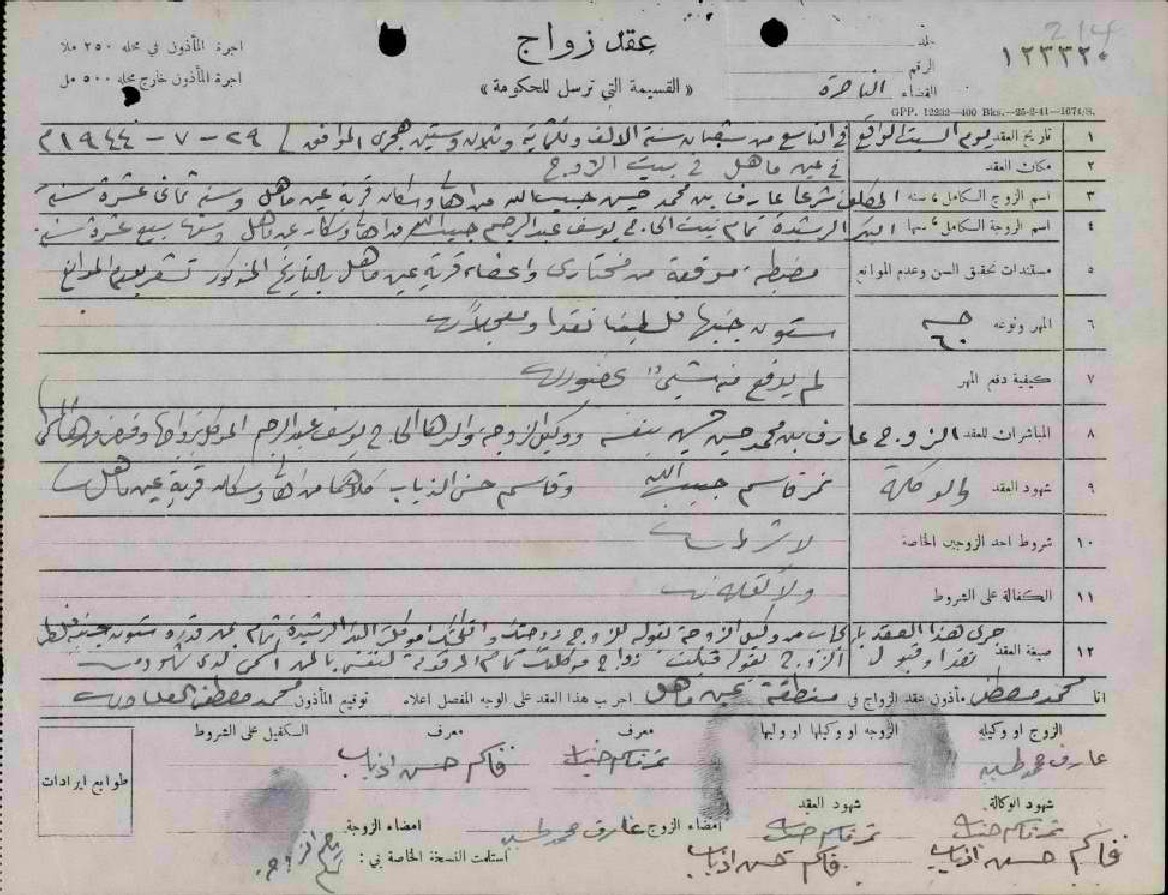 214
عقد زواج
اجرة المأذون في محله ٢٥٠ ملا
اجرة المأذون خارج محله ٥٠٠ مل
«القسيمة التي ترسل للحكومة»
جلد
الرقم ١٢٣٣٢٠
القضاء الناصرة
GPP. 12232—400 Bks.—25-2-41—1674/S.
١ تاريخ العقد يوم السبت الواقع في التاسع من شعبان سنة الالف وثلثماية وثلاث وستين هجري الموافق ٢٩ - ٧ - ١٩٤٤ م
٢ مكان العقد في عين ماهل في بيت الزوج
٣ اسم الزوج الكامل وسنه المكلف شرعا عارف بن محمد حسين حبيب الله من اهالي وسكان قرية عين ماهل وسنه ثماني عشرة سنة
٤ اسم الزوجة الكامل وسنها البكر الرشيدة تمام بنت الحاج يوسف عبد الرحيم حبيب الله من اهالي وسكان عين ماهل وسنها سبع عشرة سنة
٥ مستندات تحقيق السن وعدم الموانع مضبطة موقعة من مختاري واعضاء قرية عين ماهل بالتاريخ المذكور تشعر بعدم الموانع
٦ المهر ونوعه ٦٠ ستون جنيها فلسطينا نقدا ومعجلا
٧ كيفية دفع المهر لم يدفع منه شيئ
٨ المباشران للعقد الزوج عارف بن محمد حسين بنفسه ووكيل الزوجة والدها الحاج يوسف عبد الرحيم الموكل بزواجها وقبض مهرها
٩ شهود العقد والوكالة نمر قاسم حبيب الله وقاسم حسن الذياب كلاهما من اهالي وسكان قرية عين ماهل
١٠ شروط احد الزوجين الخاصة لا شرط
١١ الكفالة على الشروط ولا كفالة
١٢ صيغة العقد جرى هذا العقد بايجاب من وكيل الزوجة بقوله للزوج زوجتك وانكحتك موكلتي البنت الرشيدة تمام بمهر قدره ستون جنيه
نقدا وقبول الزوج بقوله قبلت زواج موكلتك تمام المرقومة لنفسي بالمهر المسمى لدى شهوده
انا محمد مصطفى مأذون عقد الزواج في منطقة عين ماهل اجريت هذا العقد على الوجه المفصل اعلاه توقيع المأذون محمد مصطفى
الزوج او وكيله الزوجه او وكيلها او وليها معرف معرف الكفيل على الشروط
عارف محمد حسين نمر قاسم حبيب قاسم حسن اذياب
طوابع ايرادات
شهود الوكالة شهود العقد
نمر قاسم حبيب نمر قاسم حبيب امضاء الزوج عارف محمد حسين امضاء الزوجة
قاسم حسن اذياب قاسم حسن اذياب استلمت النسخة الخاصة بي: